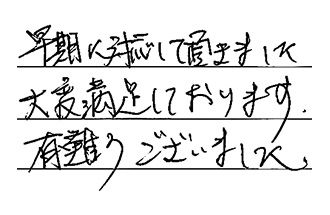 早期に対応して頂きました
大変満足しております.
有難うございました。